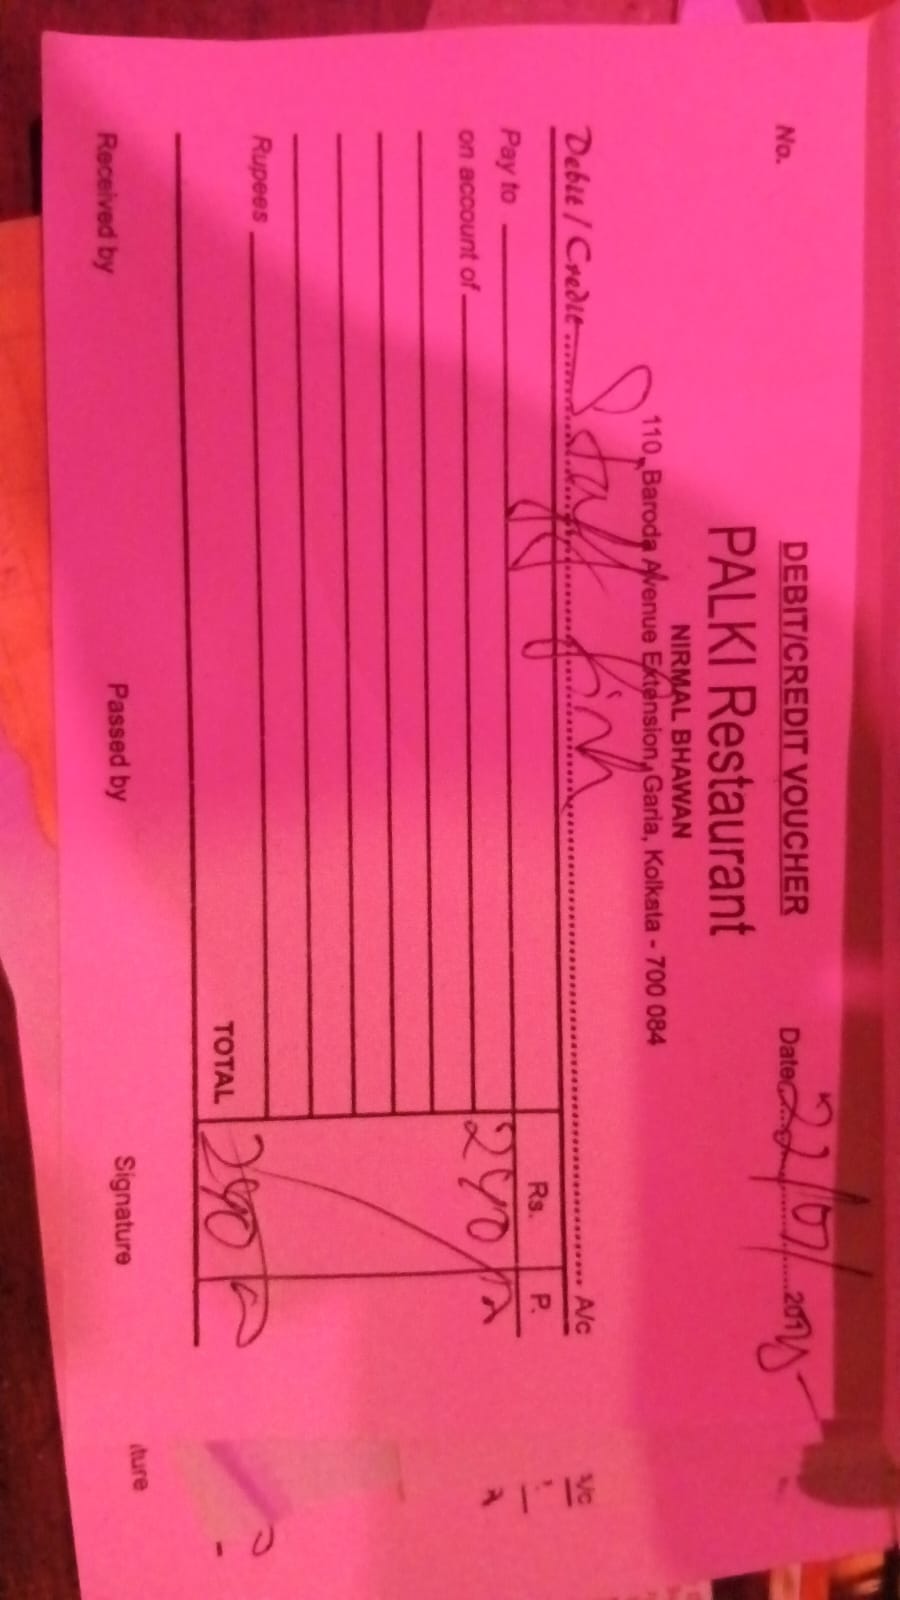 DEBIT/CREDIT VOUCHER
No. Date 22/07/201
PALKI Restaurant
NIRMAL BHAWAN
110, Baroda Avenue Extension, Garia, Kolkata - 700 084
Debit / Credit Staff fish A/c
Rs. P.
Pay to
on account of
Rupees
TOTAL
Received by Passed by Signature
ture